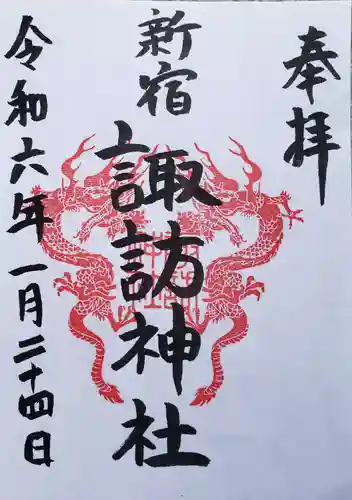 奉拝
新宿
上諏訪神社
令和六年一月二十四日